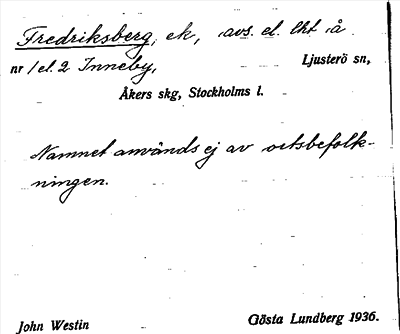 Fredriksberg, ek, avs. el. lht å
nr 1 el. 2 Inneby, Ljusterö sn,
Åkers skg, Stockholms l.
Namnet används ej av ortsbefolk-
ningen.
John Westin Gösta Lundberg 1936.